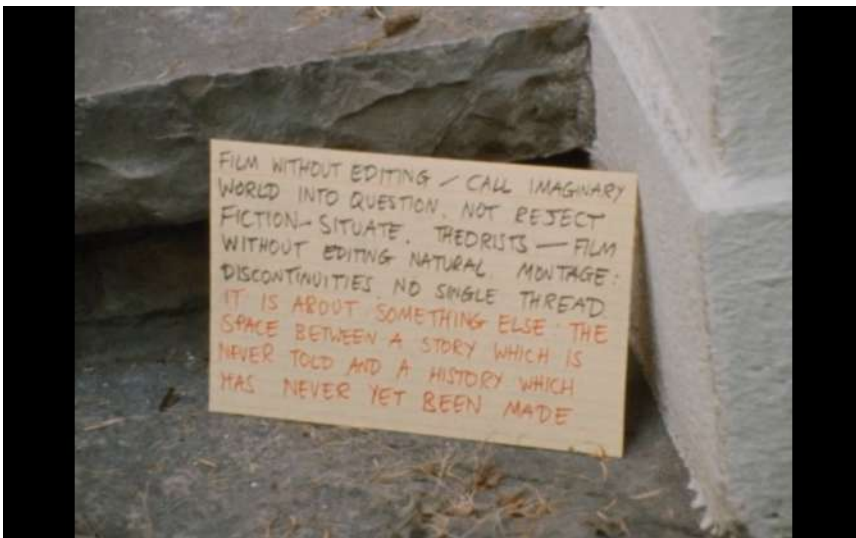 FILM WITHOUT EDITING / CALL IMAGINARY
WORLD INTO QUESTION. NOT REJECT
FICTION - SITUATE. THEORISTS — FILM
WITHOUT EDITING NATURAL. MONTAGE:
DISCONTINUITIES NO SINGLE THREAD.
IT IS ABOUT SOMETHING ELSE: THE
SPACE BETWEEN A STORY WHICH IS
NEVER TOLD AND A HISTORY WHICH
HAS NEVER YET BEEN MADE